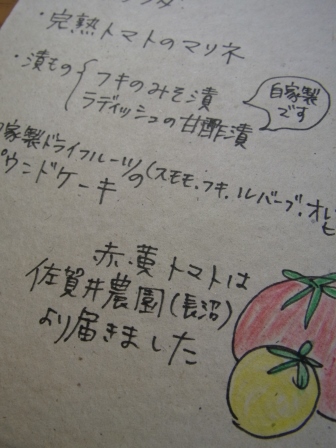 ・完熟トマトのマリネ
・漬もの
フキのみそ漬
ラディッシュの甘酢漬
自家製
です
家製ドライフルーツの(スモモ、フキ、ルバーブ、オレ
ウンドケーキ
赤、黄トマトは
佐賀井農園(長沼)
より届きました